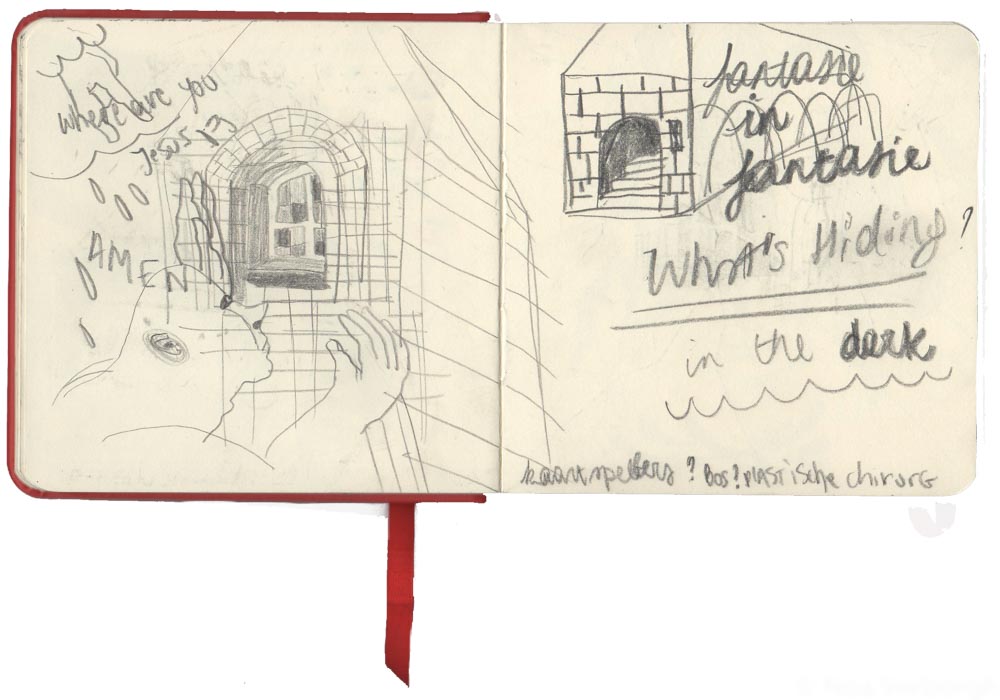 where are you
Jesus
AMEN
fantasie
in
fantasie
What's Hiding ?
in the dark
? Bos? plastische chirurg